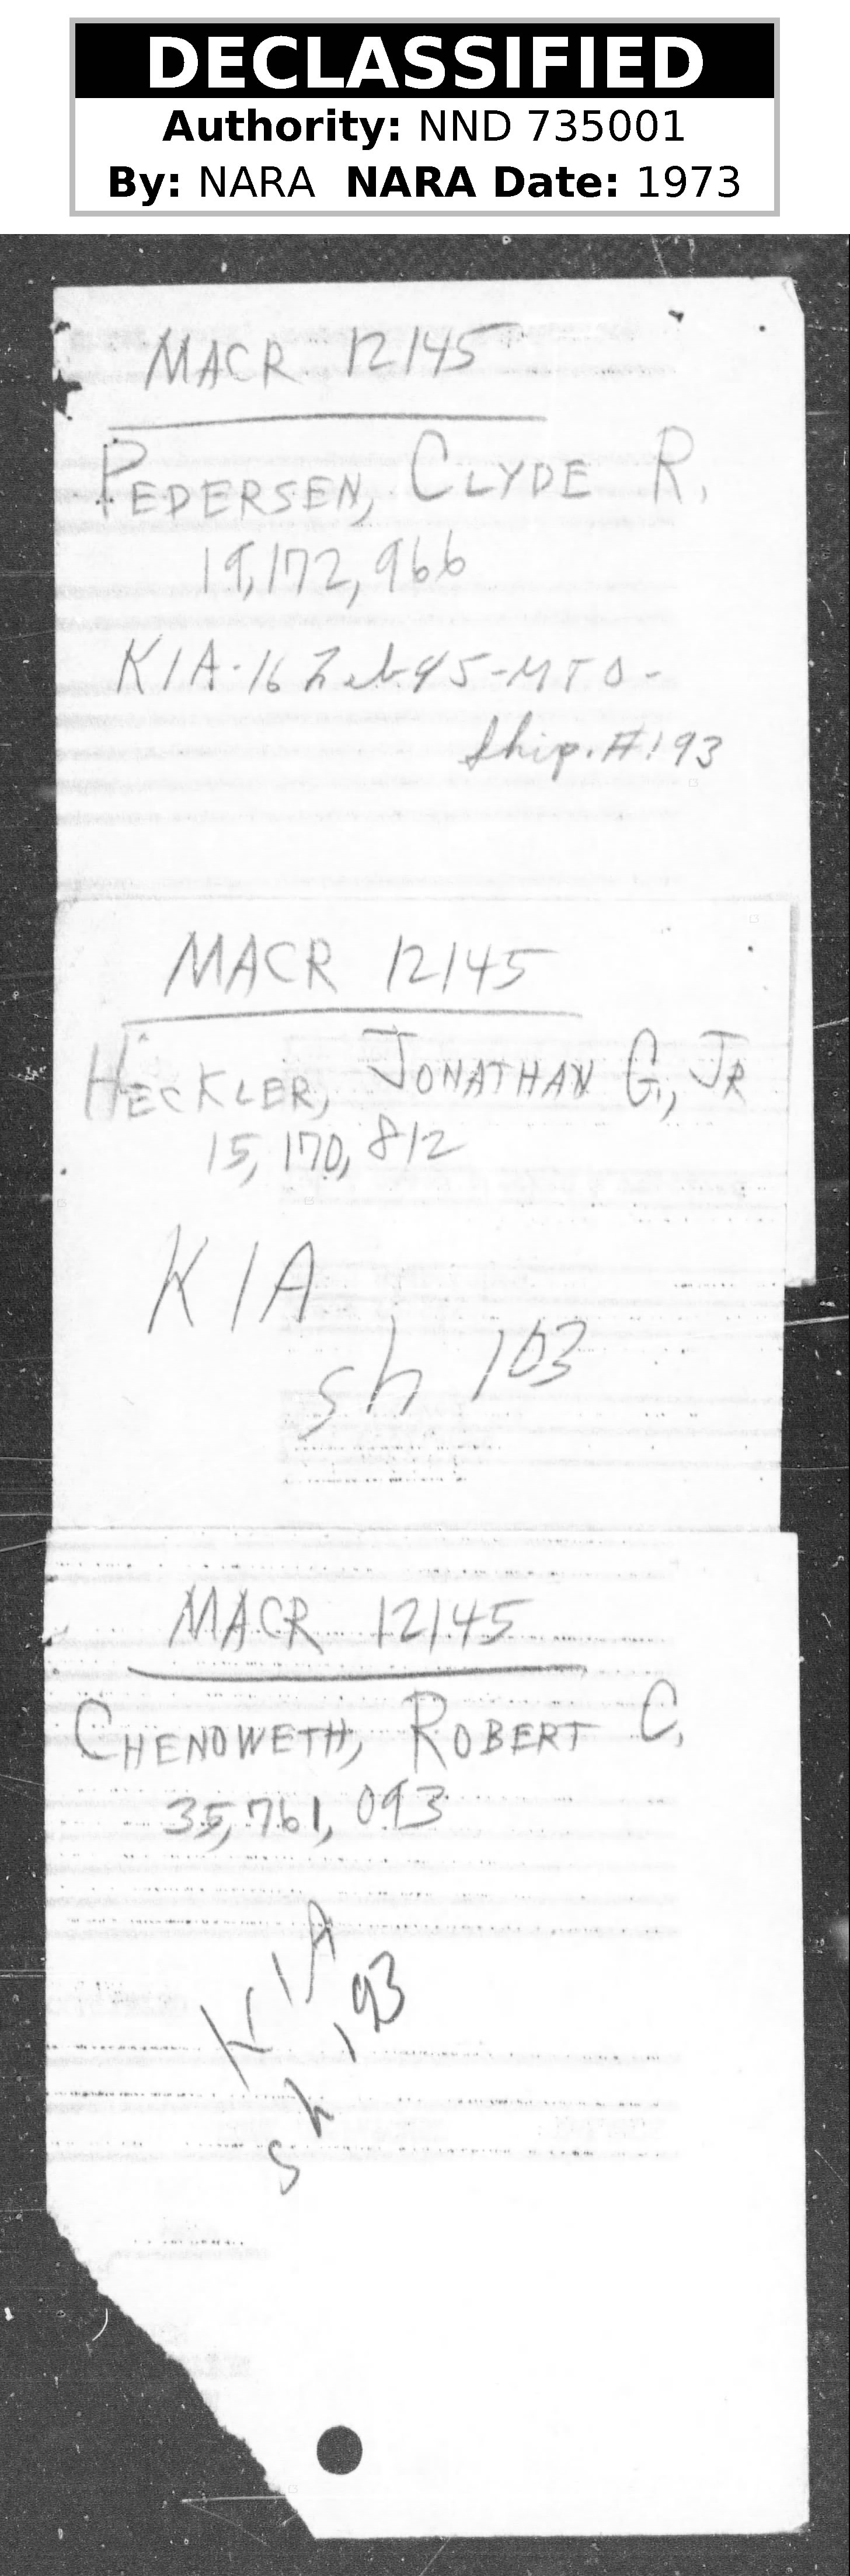 DECLASSIFIED
Authority: NND 735001
By: NARA NARA Date: 1973
MACR 12145
PEDERSEN, CLYDE R.
19,172,966
KIA-16 Feb 45-MTO-
Ship. #193
MACR 12145
HECKLER, JONATHAN G., JR
15,170,812
KIA
sh 103
MACR 12145
CHENOWETH, ROBERT C.
35,761,093
KIA
sh 193